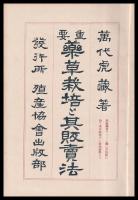 萬代虎藏著
重要 藥草栽培と其販賣法
設行所 殖産協會出版部